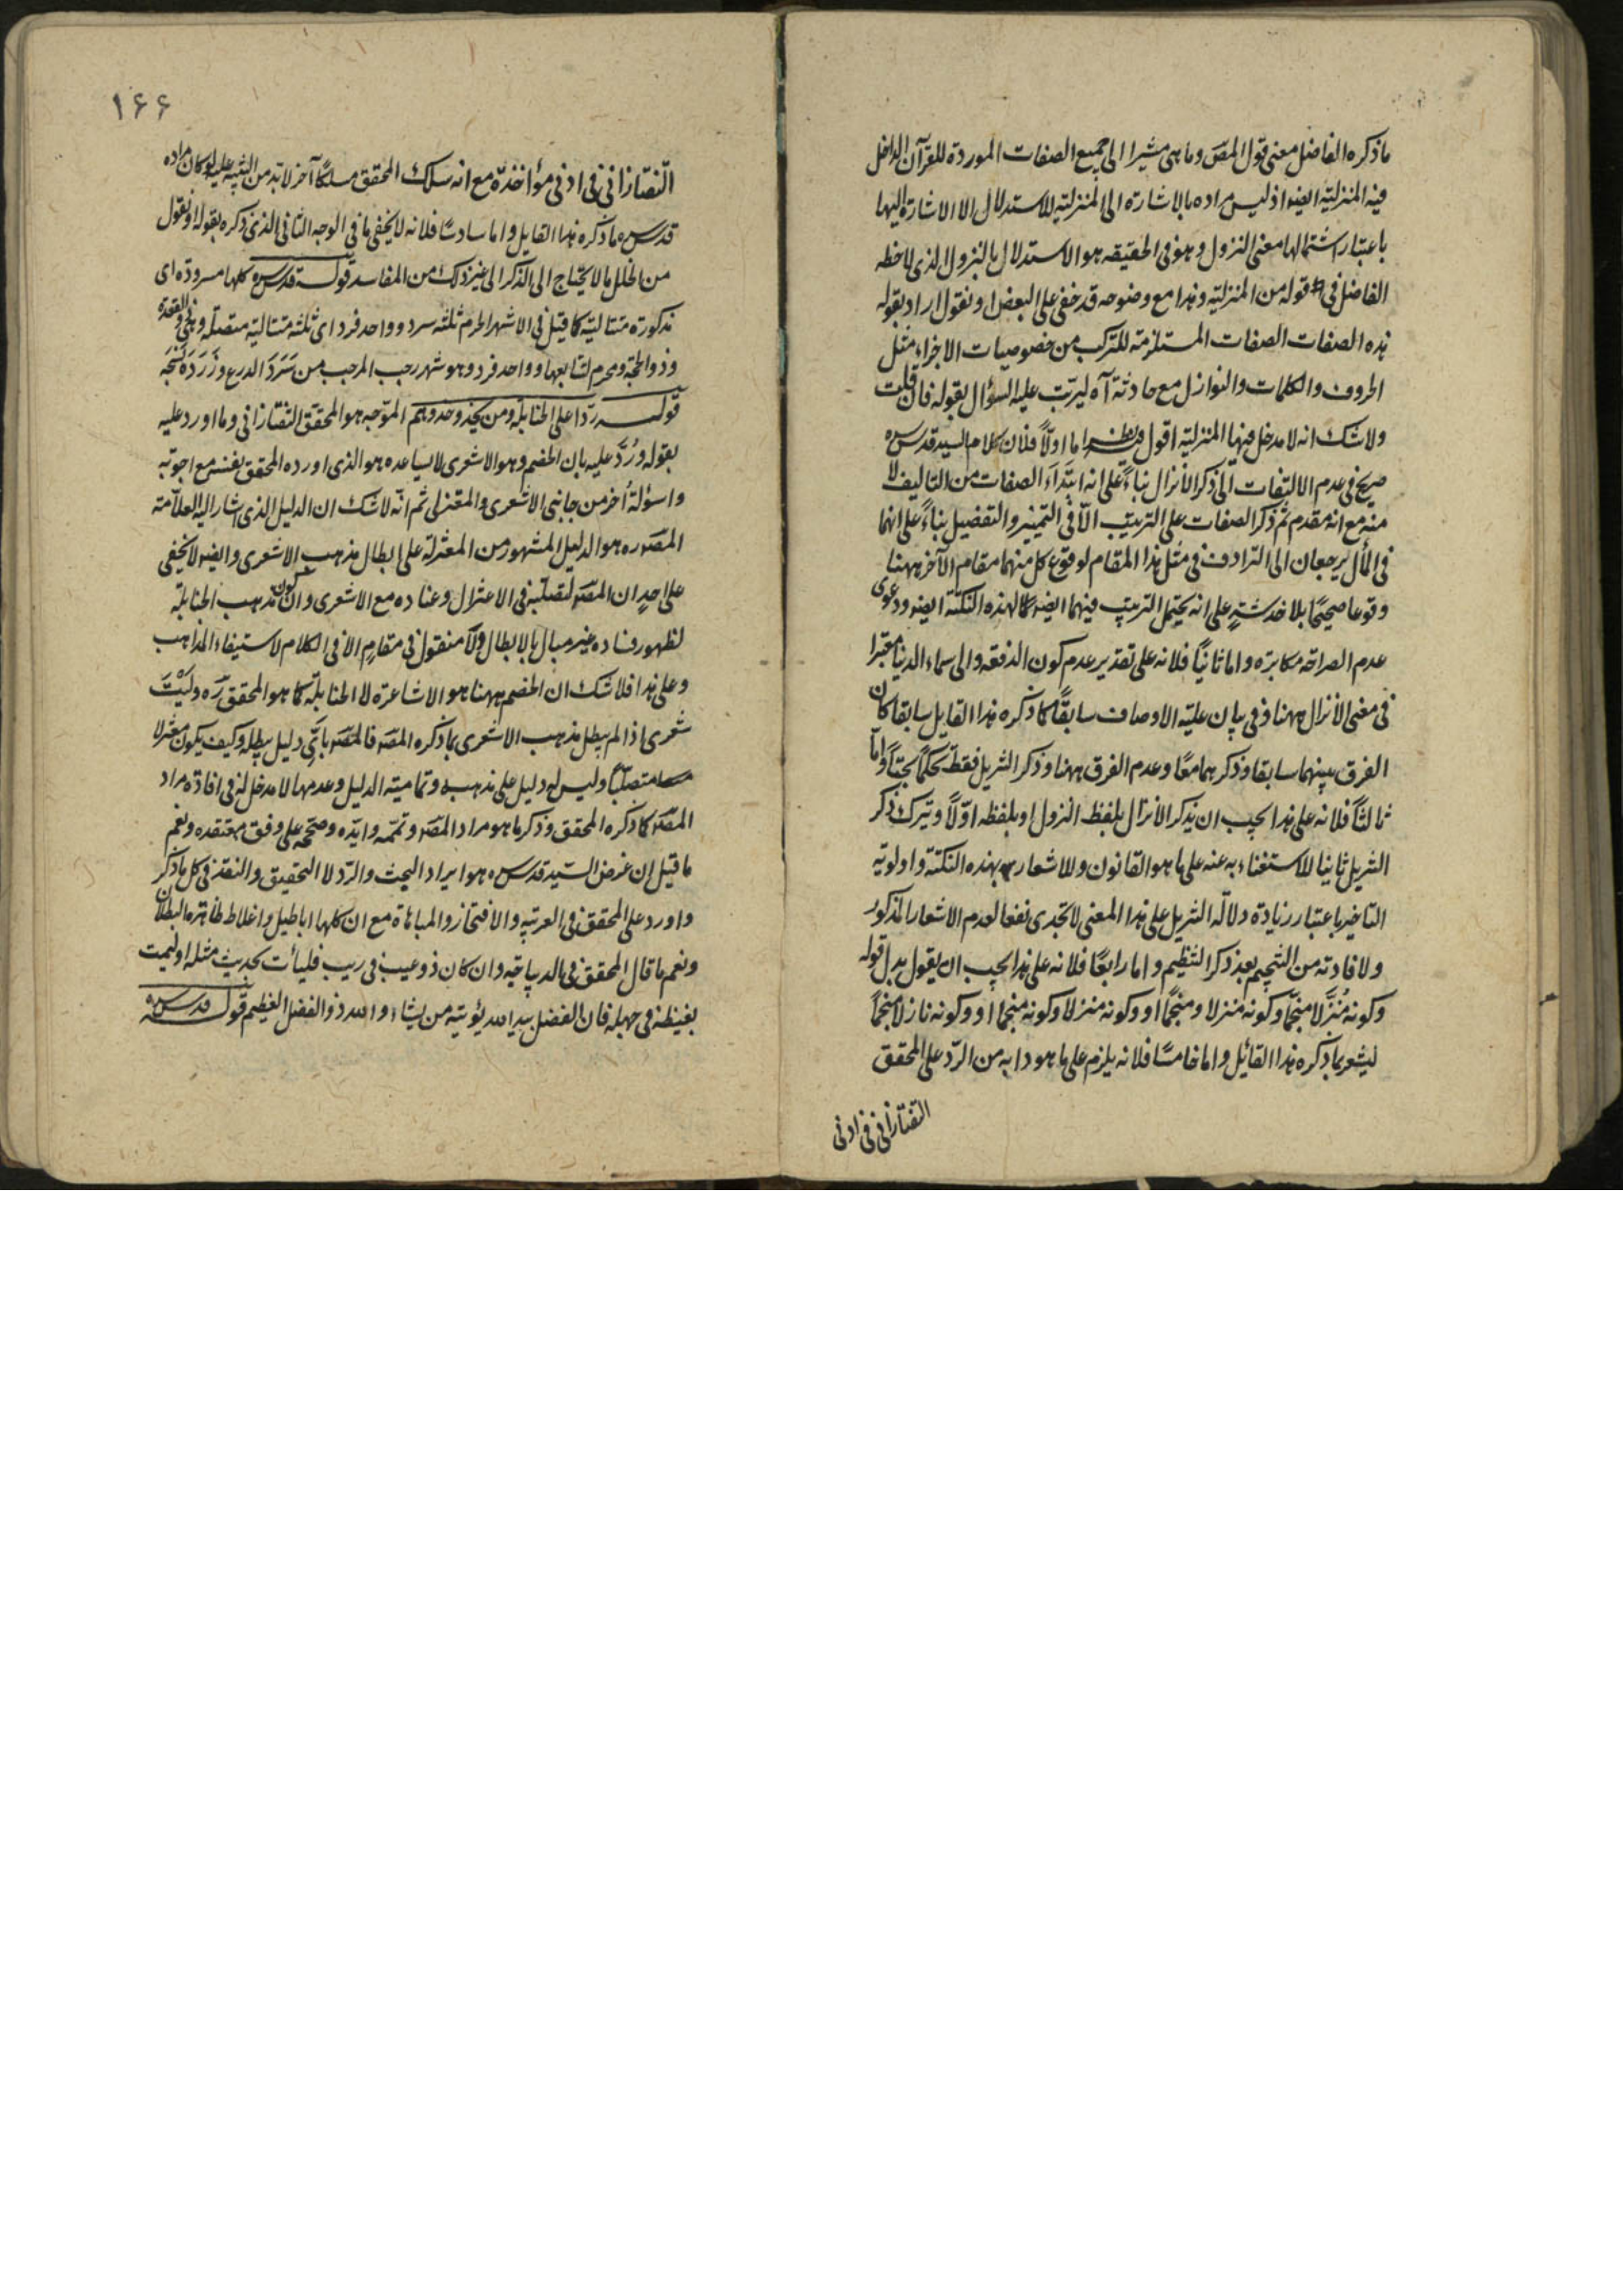 ماذكره الفاضل معنى قول المص وما هى مشيرا الى جميع الصفات الموردة للقرآن الداخل
فيه المنزلية ايضا اذ ليس مراده بالاشارة الى المنزلية للاستدلال الا الاشارة اليها
باعتبار اشتمالها معنى النزول وهو فى الحقيقه هو الاستدلال بالنزول الذى لاحظه
الفاضل فى قوله من المنزلية وهذا مع وضوحه قد خفى على البعض او نقول اراد بقوله
هذه الصفات الصفات المستلزمة للتركب من خصوصيات الاجزاء مثل
الحروف والكلمات والنوازل مع حادثة آه ليرتب عليه السؤال بقوله فان قلت
ولا شك انه لا مدخل فيها المنزلية اقول فيه نظر اما اولاً فلان كلام السيد قدس سره
صريح فى عدم الالتفات الى ذكر الانزال بناءً على انه ابتداء الصفات من التاليف لا
منه مع انه مقدم ثم ذكر الصفات على الترتيب الا فى التمييز والتفصيل بناءً على انهما
فى المأل يرجعان الى الترادف فى مثل هذا المقام لوقوع كل منهما مقام الآخر ههنا
وقوعا صحيحًا بلا خدشةٍ على انه يحتمل الترتيب فيهما ايضا كما لهذه النكتة ايضا ودعوى
عدم الصراحة مكابرة واما ثانيًا فلانه على تقدير عدم كون الدفعة والى سماء الدنيا معتبرا
فى معنى الانزال ههنا وفى بيان علية الاوصاف سابقًا كما ذكره هذا القايل سابقا كان
الفرق بينهما سابقا وذكرهما معًا وعدم الفرق ههنا وذكر التنزيل فقط تحكمًا بحتًا واما
ثالثاً فلانه على هذا يجب ان يذكر الانزال بلفظ النزول او بلفظه اوّلاً ويترك ذكر
التنزيل ثانيا للاستغناء به عنه على ما هو القانون وللاشعار بهذه النكتة واولوية
التاخير باعتبار زيادة دلالة التنزيل على هذا المعنى لا تجدى نفعا لعدم الاشعار المذكور
ولافادته من التنجيم بعد ذكر التنظيم واما رابعًا فلانه على هذا يجب ان يقول بدل قوله
وكونه مُنزَّلا منجمًا وكونه منزلا ومنجمًا او وكونه منزلا وكونه منجما او وكونه نازلا منجمًا
ليشعر بما ذكره هذا القائل واما خامسًا فلانه يلزم على ما هو دابه من الرد على المحقق
التفتازانى فى ادنى
١٤٤
التفتازانى فى ادنى مؤاخذة مع انه سلك المحقق مسلكًا آخر لا بد من التنبيه عليه لو كان مراده
قدس سره ما ذكره هذا القايل واما سادسًا فلانه لا يخفى ما فى الوجه الثانى الذى ذكره بقوله او نقول
من الخلل ما لا يحتاج الى الذكر الى غير ذلك من المفاسد قوله قدس سره كلها مسرودة اى
مذكورة متتالية كما قيل فى الاشهر الحرم ثلثة سرد وواحد فرد اى ثلثة متتالية متصلة وهى ذو القعده
وذو الحجة ومحرم لتتابعها وواحد فرد وهو شهر رجب المرجب من سَرَدَ الدرع وزَرَدَه نسَجَه
قوله ردا على الحنابلة ومن يحذو حذوهم المتوجه هو المحقق التفتازانى وما اورد عليه
بقوله ورُدَّ عليه بان الخصم وهو الاشعرى لا يساعده هو الذى اورده المحقق بنفسه مع اجوبة
واسؤلة أخر من جانبى الاشعرى والمعتزلى ثم انّه لا شك ان الدليل الذى اشار اليه العلامة
المص ره هو الدليل المشهور من المعتزلة على ابطال مذهب الاشعرى وايضا لا يخفى
على احدٍ ان المص لتصلبه فى الاعتزال وعناده مع الاشعرى وان كون مذهب الحنابلة
لظهور فساده غير مبال بالابطال ولا منقول فى مقام الا فى الكلام لاستيفاء المذاهب
وعلى هذا فلا شك ان الخصم ههنا هو الاشاعرة لا الحنابلة كما هو المحقق ره وليت
شعرى اذا لم يبطل مذهب الاشعرى بما ذكره المص فالمص باىِّ دليل يبطله وكيف يكون معتزلا
متصلبًا وليس له دليل على مذهبه وتمامية الدليل وعدمها لا مدخل له فى افادة مراد
المص كما ذكره المحقق وذكر ما هو مراد المص وتممه وايّده وصححه على وفق معتقده ونعم
ما قيل ان غرض السيد قدس سره هو ايراد البحث والرد لا التحقيق والنقد فى كل ما ذكر
واورد على المحقق فى العربية والافتخار والمباهاة مع ان كلها اباطيل واغلاط ظاهرة البطلان
ونعم ما قال المحقق فى الديباجة وان كان ذو عيب فى ريب فليأت بحديث مثله او ليمت
بغيظه فى جهله فان الفضل بيد الله يؤتيه من يشاء والله ذو الفضل العظيم قوله قدس سره